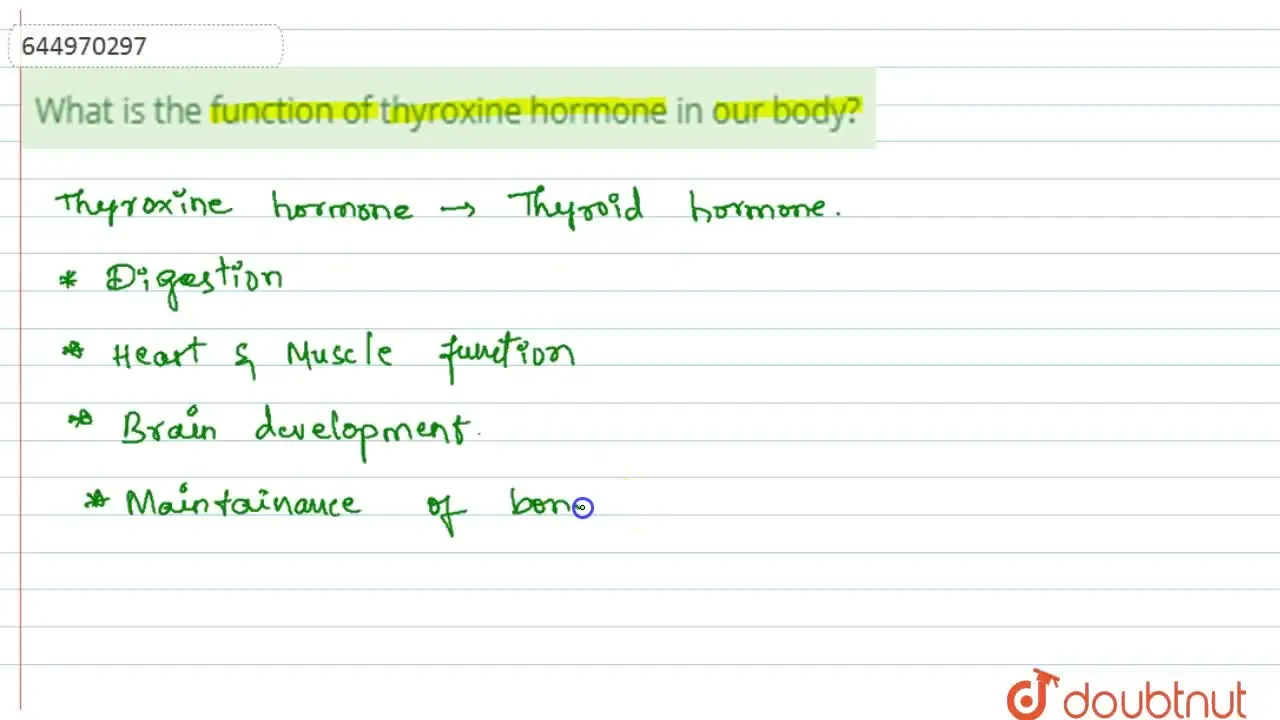 644970297
What is the function of thyroxine hormone in our body?
Thyroxine hormone → Thyroid hormone.
* Digestion
* Heart & Muscle function
* Brain development.
* Maintainance of bon
doubtnut